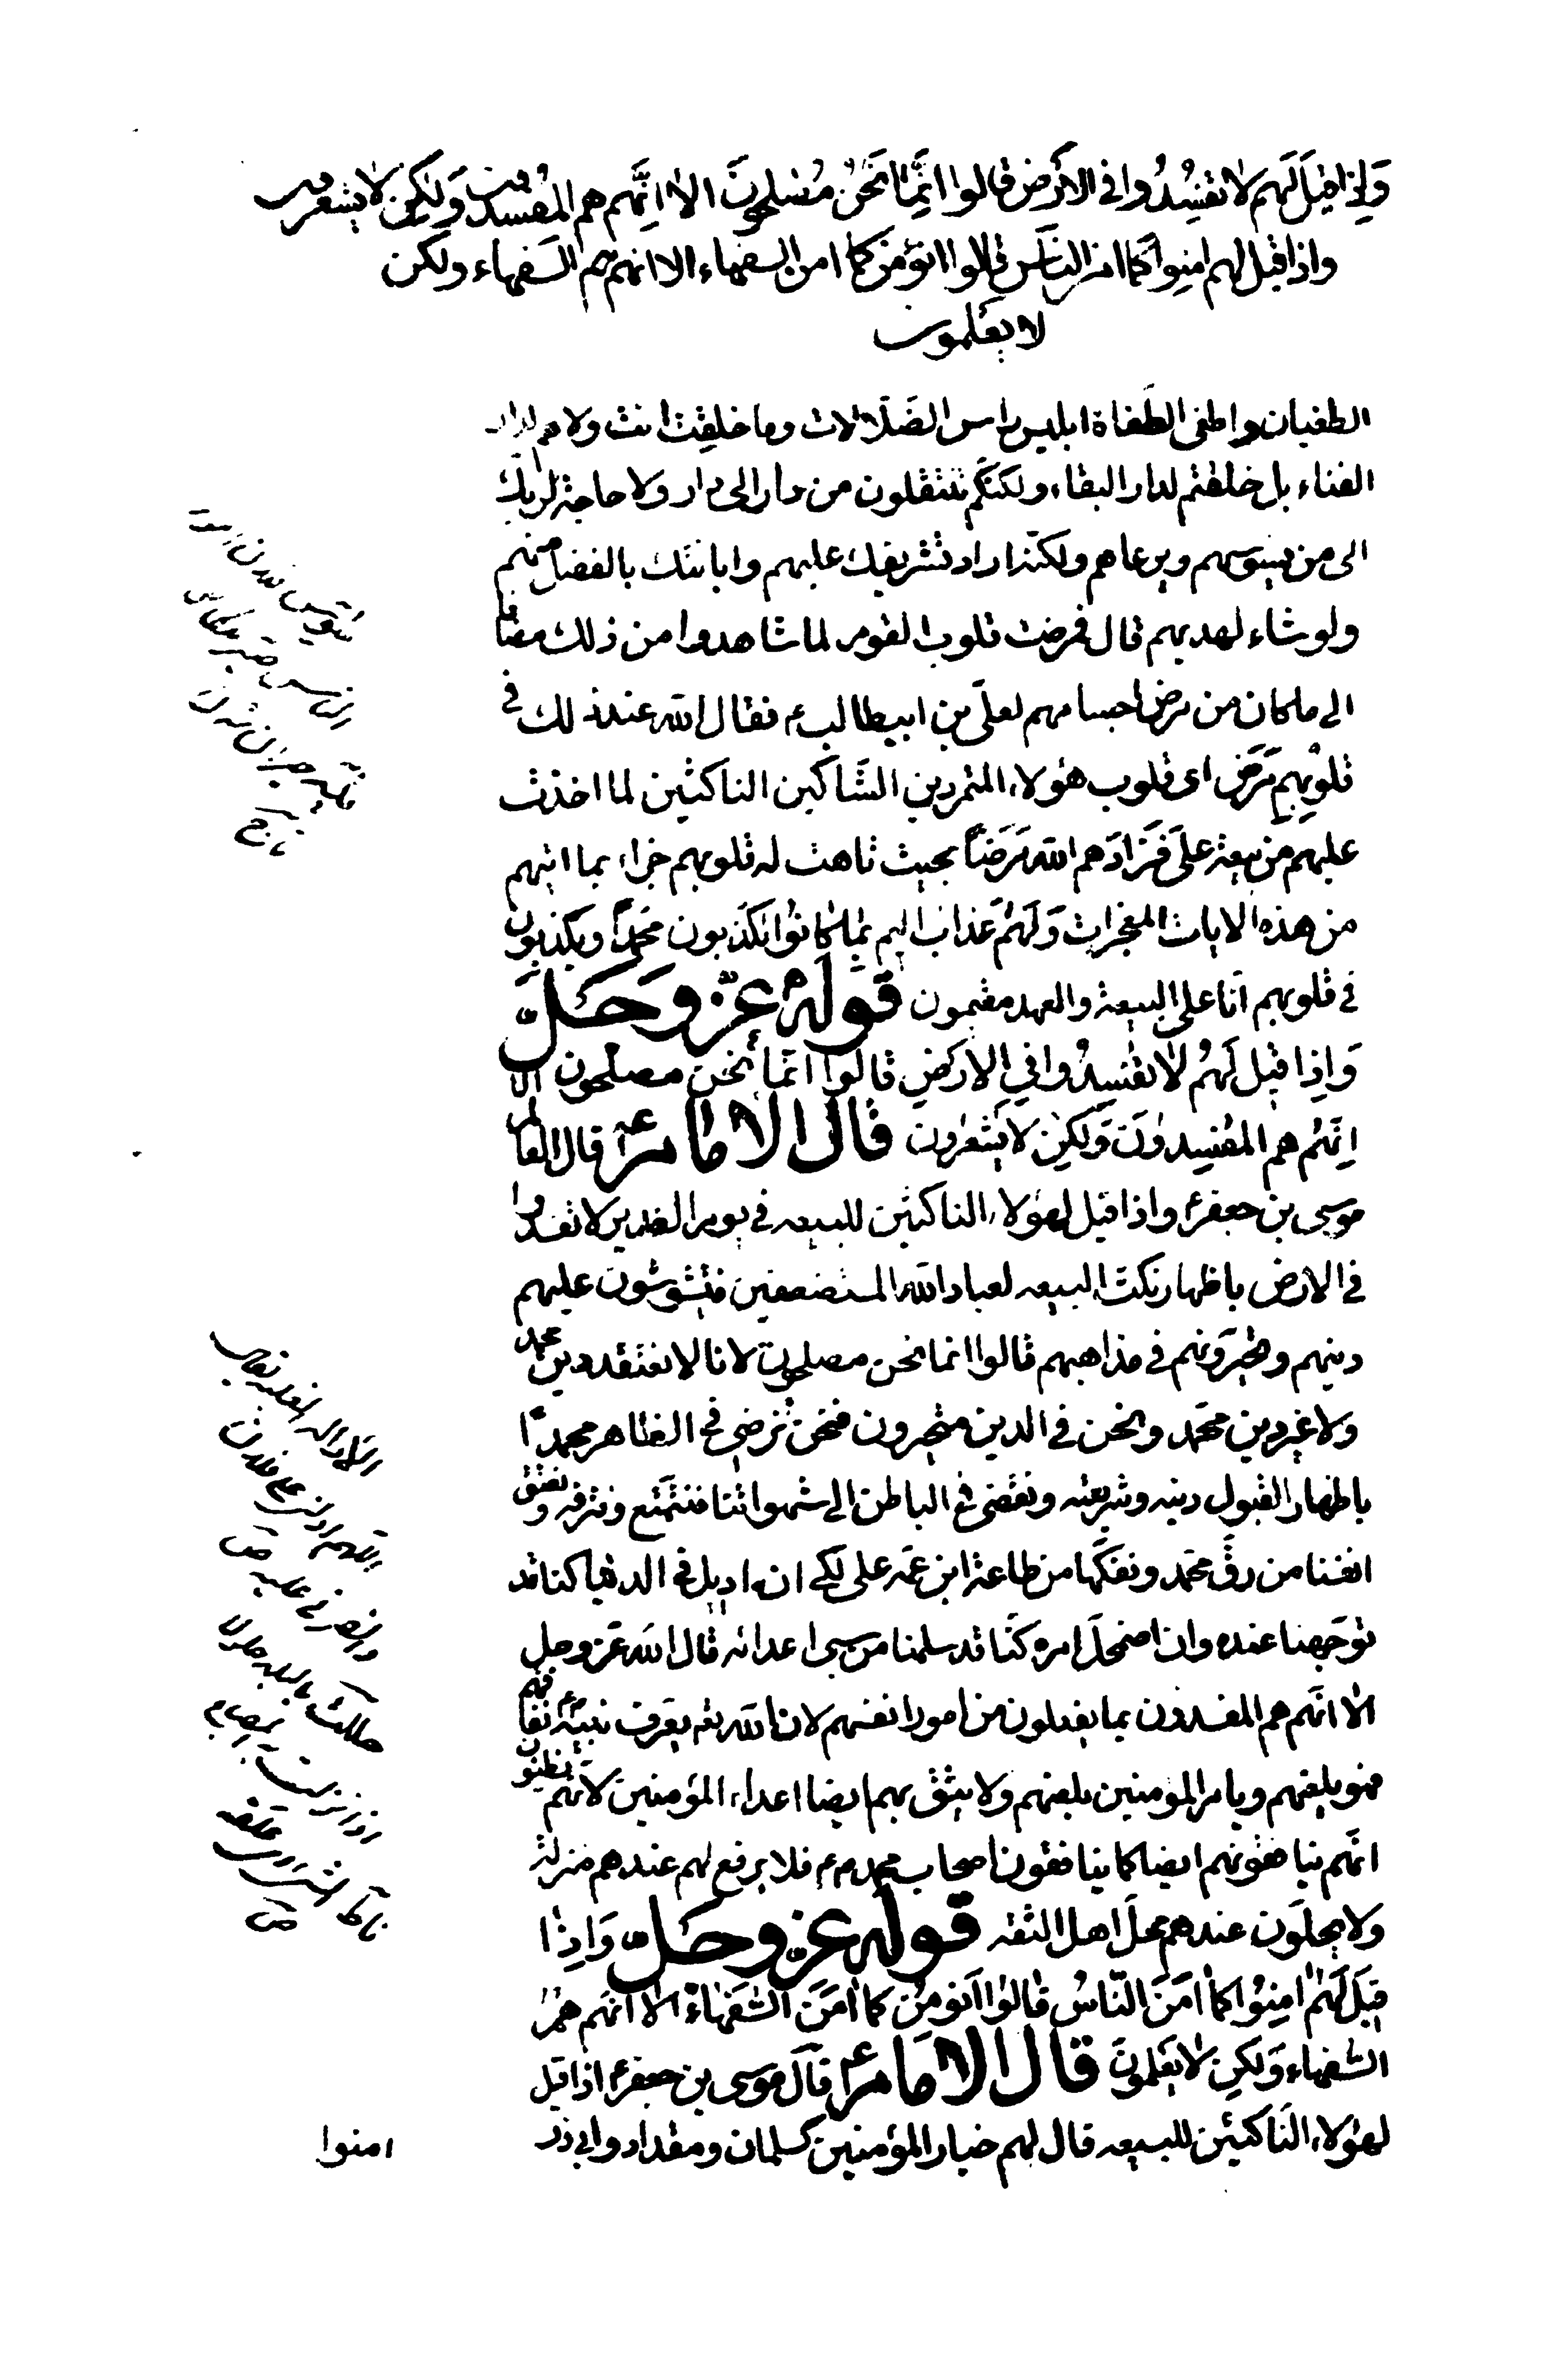 وَإِذا قيلَ لَهم لا تفسِدُوا في الأرض قالوا إنَّما نَحنُ مُصلحونَ الا انَّهم هم المُفسدون وَلكِن لا يشعرون
واذا قيل لهم امنوا كما امن الناس قالوا انؤمن كما امن السفهاء الا انهم هم السفهاء ولكن
لا يعلمون
الطغيان واطغى الطغاة ابليس راس الضلالات وما خلقت انت ولا هم لدار
الفناء بل خلقتم لدار البقاء ولكنكم تنتقلون من دار الى دار ولا حاجة لربك
الى من يسوسهم ويرعاهم ولكنه اراد تشريفك عليهم وابانتك بالفضل منهم
ولو شاء لهديهم قال فمرضت قلوب القوم لما شاهدوا من ذلك مضافا
الى ما كان من مرض اجسامهم لعلي بن ابيطالب ع فقال الله عند ذلك في
قلوبهم مَرَض اى قلوب هؤلاء المتمردين الشاكين الناكثين لما اخذت
عليهم من بيعة علي فَزادَهم الله مَرَضاً بحيث تاهت له قلوبهم جزاء بما اتيهم
من هذه الايات المعجزات وَلَهُم عَذاب اليم بما كانُوا يكذبون محمداً ويكذبون
في قلوبهم انا على البيعة والعهد مقيمون قوله عزّ وجَلّ
وَاِذا قيل لَهُم لا تفسِدُوا في الارض قالوا انما نحن مصلحون الا
اِنَّهُم هم المفسِدوُنَ وَلكِن لا يشعرون قال الامام ع قال العالم
موسى بن جعفر ع واذا قيل لهؤلاء الناكثين للبيعه في يوم الغدير لا تفسدوا
في الارض باظهار نكث البيعه لعباد الله المستضعفين فتشوشون عليهم
دينهم وتحيرونهم في مذاهبهم قالوا انما نحن مصلحون لانا لا نعتقد دين محمد
ولا غير دين محمد ونحن في الدين متحيرون فنحن نرضى في الظاهر محمداً
باظهار القبول دينه وشريعته ونقضى في الباطن الى شهواتنا فنتمتع ونترفه ونعتق
انفسنا من رق محمد ونفكها من طاعة ابن عمه على لكى ان اديل في الدنيا كنا قد
توجهنا عنده وان اضمحل امره كنا قد سلمنا من سبى اعدائه قال الله عز وجل
الا انهم هم المفسدون بما يفعلون من امور انفسهم لان الله تع يعرف نبيه ص نفاقهم
فهو يلعنهم ويامر المؤمنين بلعنهم ولا يثق بهم ايضا اعداء المؤمنين لانهم يظنون
انهم ينافقونهم ايضا كما ينافقون اصحاب محمد ص فلا يرفع لهم عندهم منزلة
ولا يحلون عندهم محل اهل الثقه قوله عز وجل وَاِذا
قيل لَهُم امِنُوا كما امَنَ النّاسُ قالوُا اَنؤمِنُ كما امَنَ السفَهاءُ الا انهم هُمُ
السفهاء وَلكِن لا يعلمونَ قال الامام ع قال موسى بن جعفر ع اذا قيل
لهؤلاء الناكثين للبيعه قال لهم خيار المؤمنين كسلمان ومقداد وابي ذر
امنوا